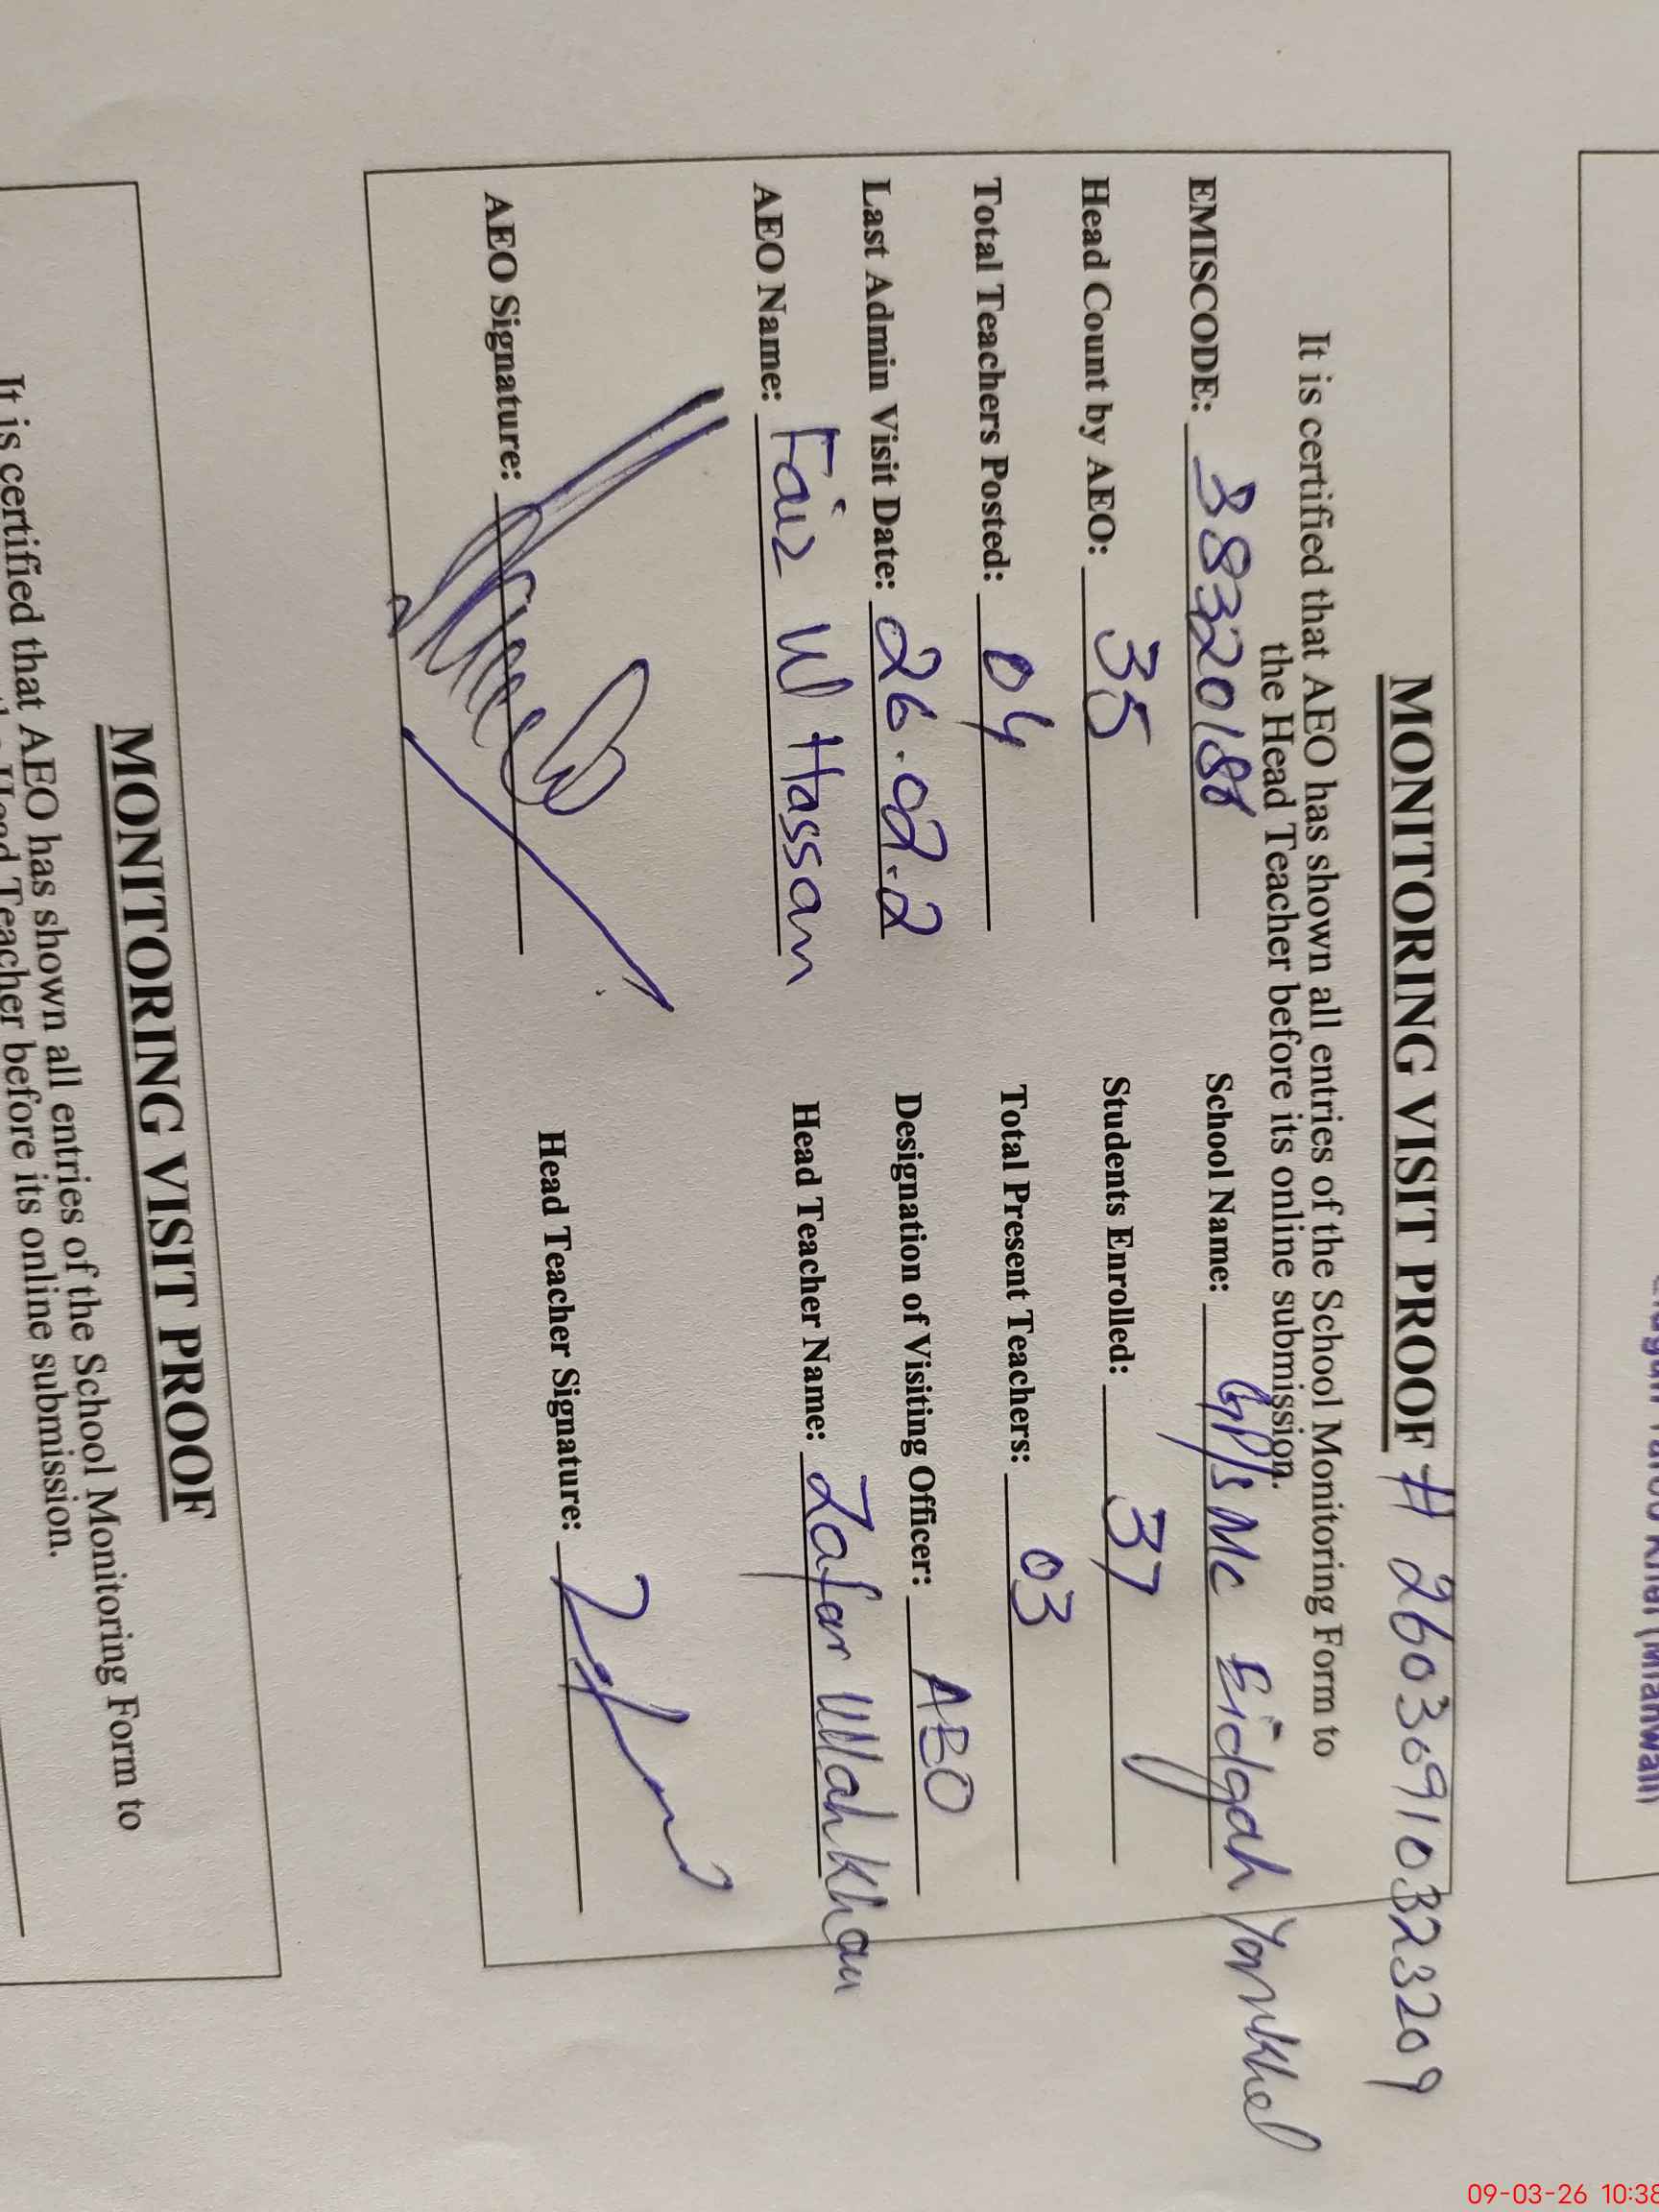 MONITORING VISIT PROOF # 260309103239209
It is certified that AEO has shown all entries of the School Monitoring Form to
the Head Teacher before its online submission.
EMISCODE: 38320188 School Name: GP/s Mc Eidgah Yarukhel
Head Count by AEO: 35 Students Enrolled: 37
Total Teachers Posted: 04 Total Present Teachers: 03
Last Admin Visit Date: 26.02.2 Designation of Visiting Officer: AEO
AEO Name: Faiz Ul Hassan Head Teacher Name: Zafar Ullah Khan
AEO Signature: Head Teacher Signature:
MONITORING VISIT PROOF
It is certified that AEO has shown all entries of the School Monitoring Form to
the Head Teacher before its online submission.
09-03-26 10:38